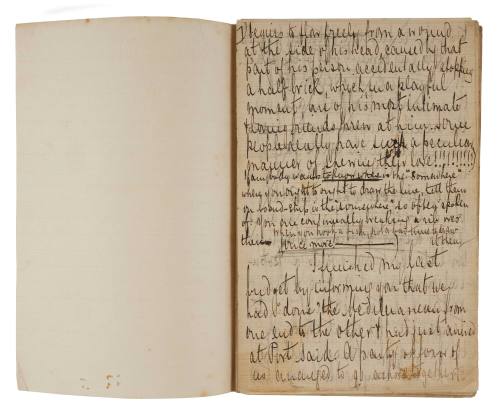 begins to flow freely from a wound
at the side of his head, caused by that
part of his person accidentally stopping
a half brick, which in a playful
moment, one of his most intimate
friends threw at him. Some
people really have such a peculiar
manner of showing their love!!!!!!!!
body wants to know where is the "Somewhere"
when you ought to draw the line, tell them
on board ship is the "somewhere" so often spoken
of. You are continually breaking a rib over
when you hook a fish, not a bad time to draw
them it then
write more
I finished my last
budget by informing you that we
had "done" the Mediterranean from
one end to the other & had just arrived
at Port Said. A party of four of
us arranged to go ashore together